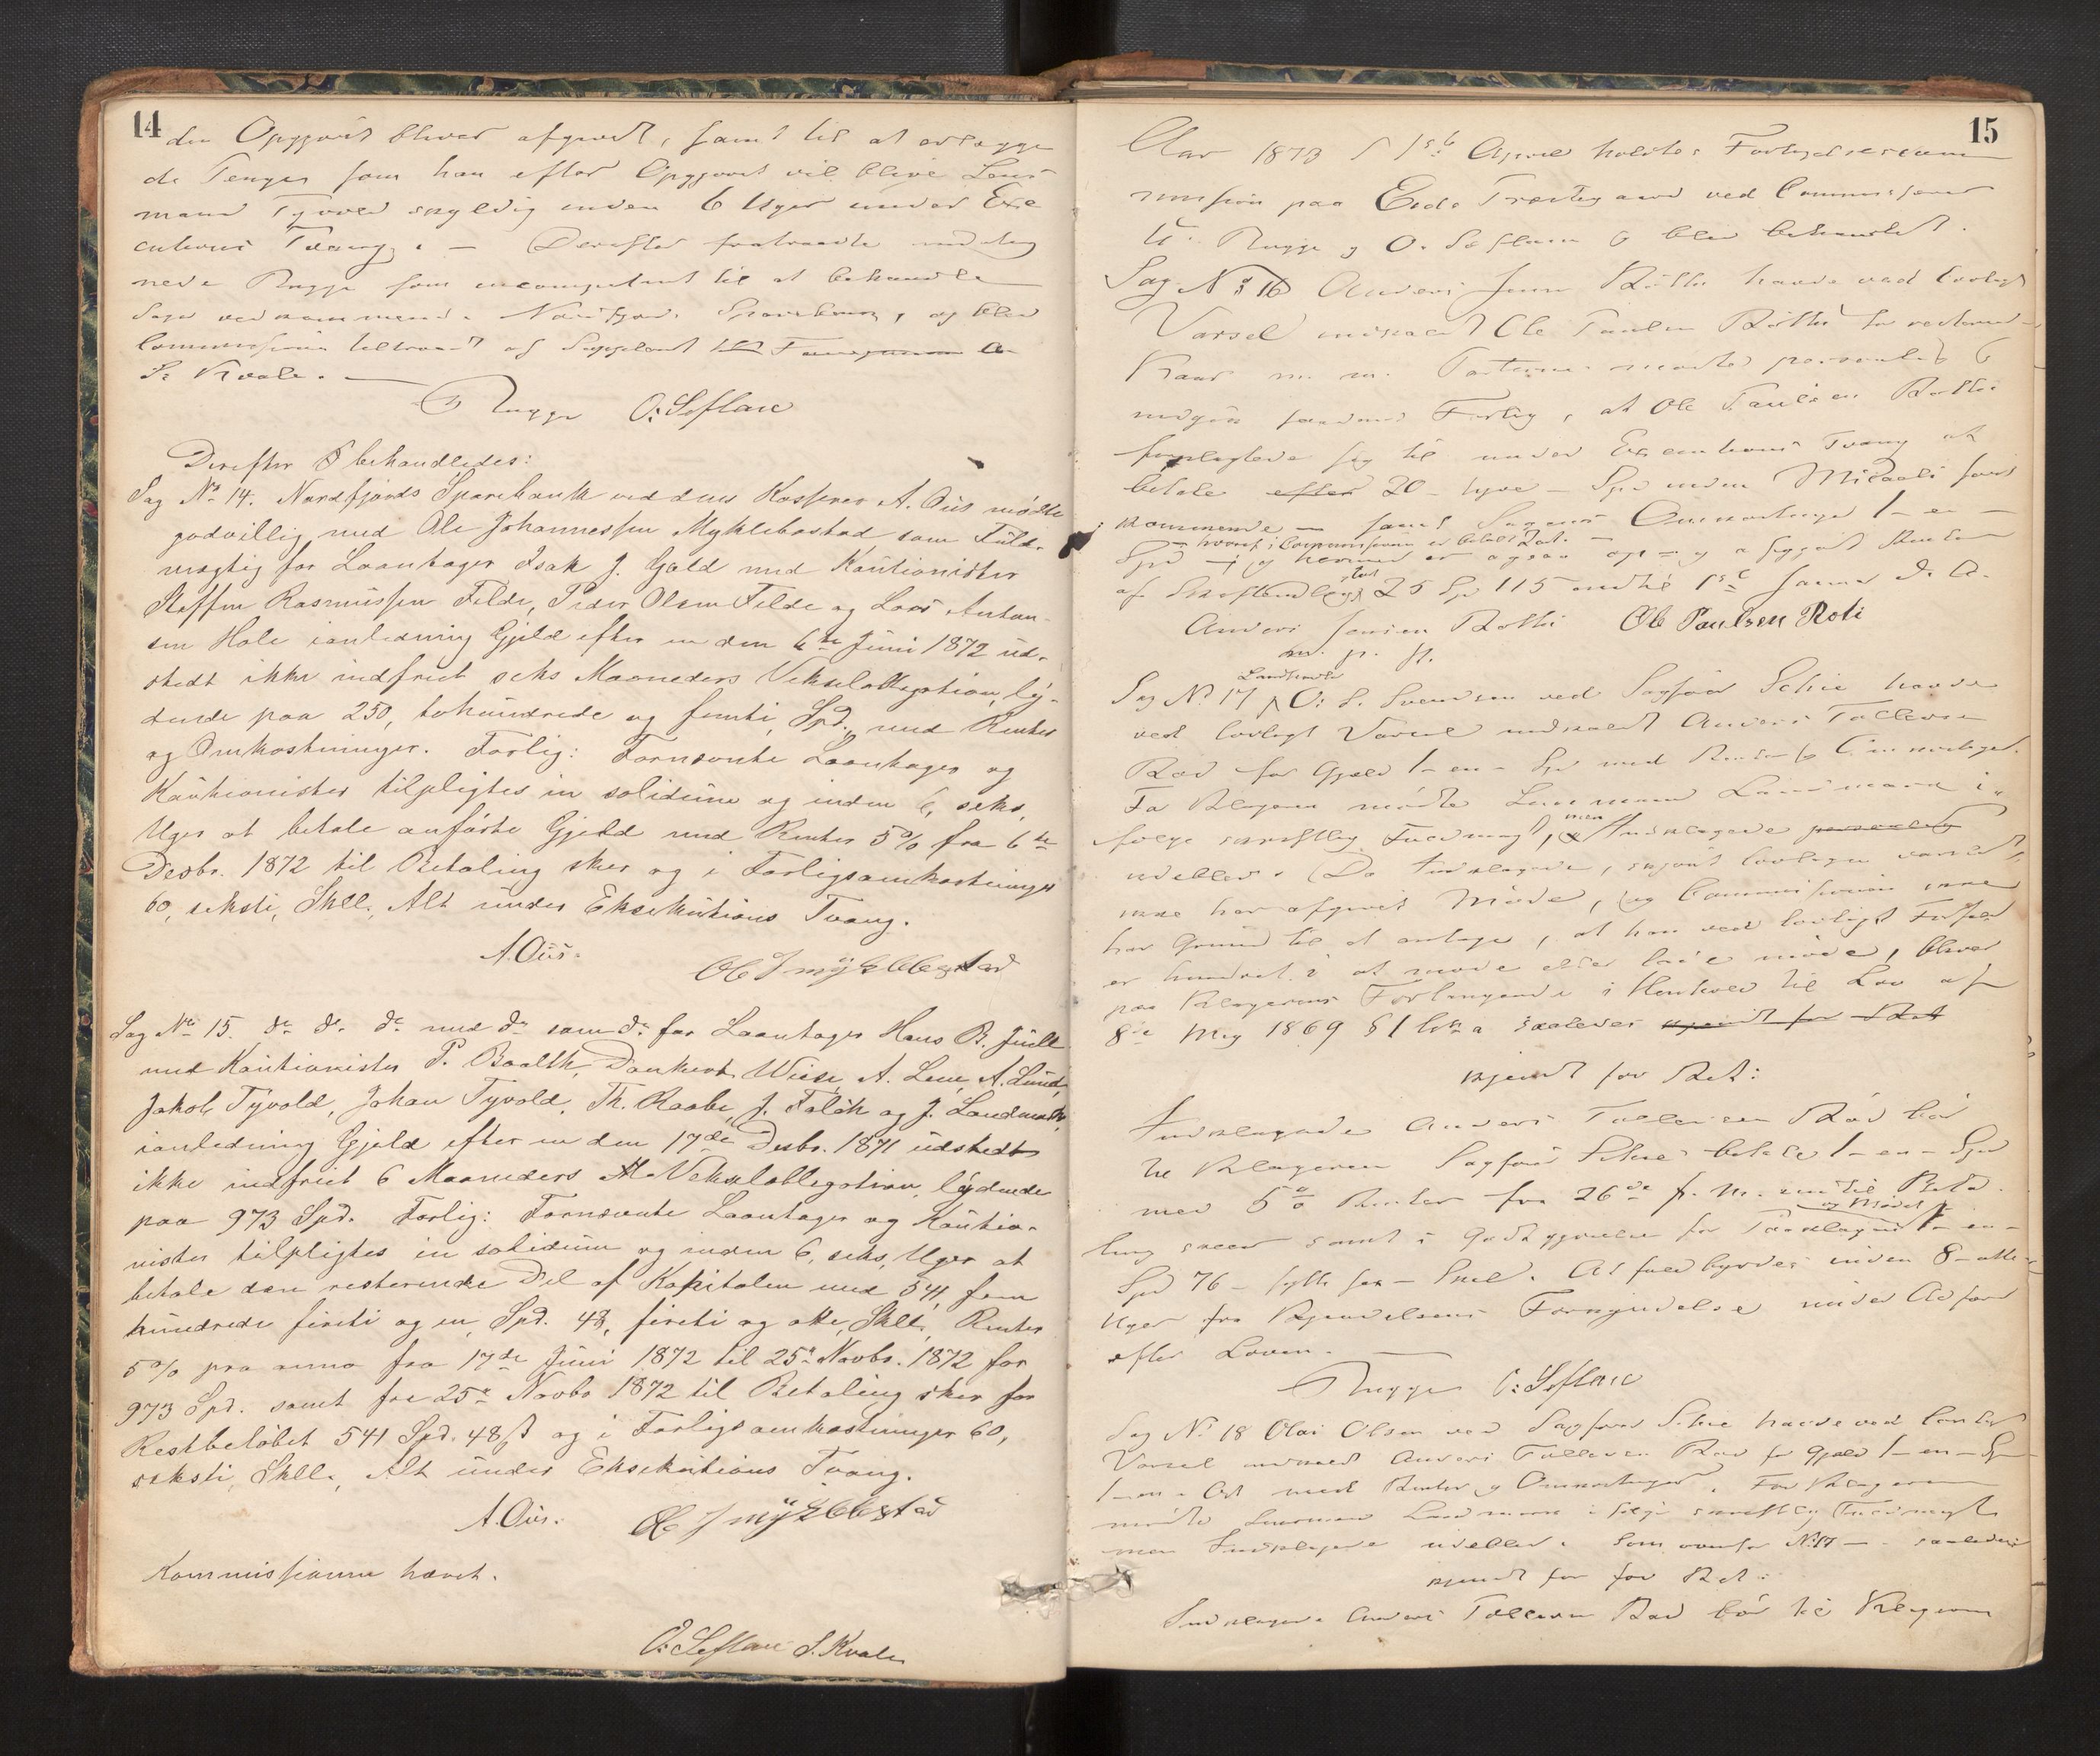 14
den Opgjørs bliver afgivet, samt til at erlægge
de Penger som han efter Opgjøret vil blive Lens-
mand Tyvold skyldig inden 6 Uger under Exe
cutions Tvang. — Derefter fratraadte
Rugge som incompetent til at behandle
Sager vedkommende Nordfjords Sparebank, og blev
Commissionen tiltraadt af Suppleant
S. Kvale. —
Rugge O: Seflan
Derefter behandledes:
Sag No 14. Nordfjords Sparebank ved dens Kasserer A. Ous mødte
godvillig med Ole Johannessen Myklebostad som Fuld-
mægtig for Laantager Isak J. Gald med Kautionister
Steffen Rasmussen Felde, Peder Olsen Felde og Lars Anton-
sen Hole ianledning Gjeld efter en den 6te Juni 1872 ud-
stedt ikke indfriet seks Maaneders Vekselobligation, ly-
dende paa 250, tohundrede og femti, Spd., med Renter
og Omkostninger. Forlig: Fornævnte Laantager og
Kautionister tilpligtes in solidum og inden 6, seks,
Uger at betale anførte Gjeld med Renter 5% fra 6te
Decbr. 1872 til Betaling sker og i Forligsomkostninger
60, seksti, Skll., Alt under Eksekutions Tvang.
A. Ous. Ole J myklebstad
Sag No 15. do do do med do som do for Laantager Hans B. Juell
med Kautionister P. Baalth, Dankert Wiese, A. Lem, A. Lund,
Jakob Tyvold, Johan Tyvold, Th. Raabe, J. Falck og J. Landmark,
ianledning Gjeld efter en den 17de Decbr. 1871 udstedt
ikke indfriet 6 Maaneders Vekselobligation, lydende
paa 973 Spd. Forlig: Fornævnte Laantager og Kautio-
nister tilpligtes in solidum og inden 6, seks, Uger at
betale den resterende Del af Kapitalen med 541, fem
hundrede firti og en, Spd. 48, firti og otte, Skll., Renter
5% pro anno fra 17de Juni 1872 til 25de Novbr. 1872 for
973 Spd. samt fra 25de Novbr 1872 til Betaling sker for
Restbeløbet 541 Spd. 48 s og i Forligsomkostninger 60,
seksti, Skll., Alt under Eksekutions Tvang.
A. Ous. Ole J myklebstad
Kommissionen hævet.
O: Seflan S. Kvale
15
Aar 1873 d 1ste April holdtes Forligelsescom
mission paa Eids Præstegaard ved Commissærer
Rugge og O. Seflan blev behandlet.
Sag No 16 Anders Jensen Røtti havde ved lovligt
Varsel indkaldt Ole Paulsen Røtti for resterende
Kaar m. m. Parterne mødte personlig &
indgik saadant Forlig, at Ole Paulsen Røtti
forpligtede sig til under Executions Tvang at
betale efter 20 - tyve - Spd inden Micaeli først
kommende — samt Sagens Omkostninger 1 - en -
hvoraf i Commissionen er betalt
Spd - og hermed er ogsaa opgjort
af 25 Spd 115 1ste samme d. A.
Anders Jensen Røtti Ole Paulsen Roti
m. p. p.
Landhandler
Sag No 17 O: S. Svendsen ved Sagfører Schie havde
ved lovligt Varsel indkaldt Anders Tollevsen
Rød for Gjeld 1 - en - Spd med Renter & Omkostninger.
For Klageren mødte Lensmand Landmark i-
følge skriftlig Fuldmagt, men Indklagede personlig
udeblev. Da Indklagede, skjønt lovligen varslet,
ikke har afgivet Møde, og Commissionen ikke
har Grund til at antage, at han ved lovligt Forfald
er hindret i at møde eller lade møde, bliver
paa Klagerens Forlangende i Henhold til Lov af
8de Maj 1869 § 1 litr a saaledes kjendt for Ret
kjendt for Ret:
Indklagede Anders Tollevsen Rød bør
til Klageren Sagfør Schie betale 1 - en - Spd
med 5% Renter fra 26de f. M. indtil Beta-
og Mødet
ling skeer samt i Godtgjørelse for Paaklagen 1 - en -
Spd 76 - sytti sex - Skill. At fuldbyrdes inden 8 - otte -
Uger fra Kjendelsens Forkyndelse under Adfærd
efter Loven. —
Rugge O: Seflan
Sag No 18 Olai Olsen ved Sagfører Schie havde ved lovligt
Varsel indkaldt Anders Tollevsen Rød for Gjeld 1 - en - Spd
1 - en - Ort med Renter og Omkostninger. For Klageren
mødte Lensmand Landmark ifølge skriftlig Fuldmagt
men Indklagede udeblev. Som ovenfor No 17 — saaledes
kjendt for for Ret:
Indklagede Anders Tollevsen Rød bør til Klageren